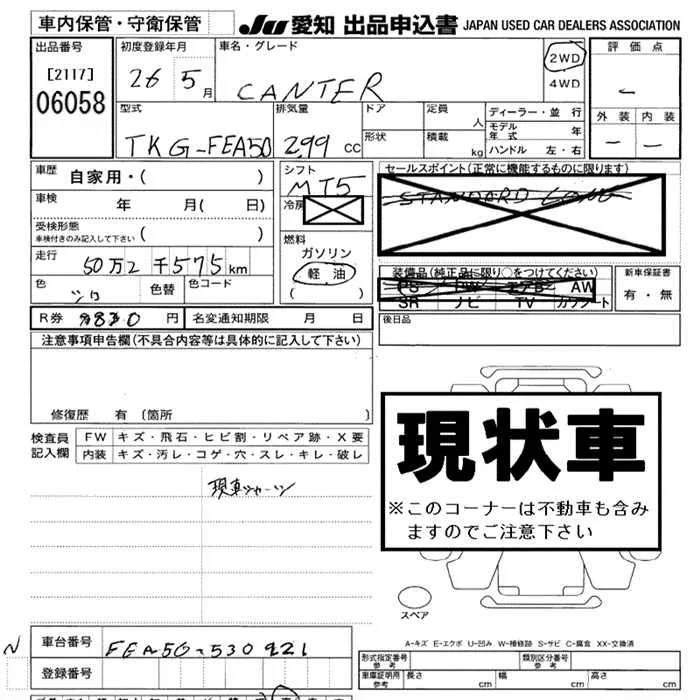 車内保管・守衛保管
JU 愛知 出品申込書 JAPAN USED CAR DEALERS ASSOCIATION
出品番号
[2117]
06058
初度登録年月
26 5月
車名・グレード
CANTER
2WD
4WD
評価点
外装 内装
型式
TKG-FEA50
排気量
2.99 cc
ドア
形状
定員
人
積載
kg
ディーラー・並行
モデル年式 年
ハンドル 左・右
車歴 自家用・( )
車検 年 月( 日)
受検形態
※検付きのみ記入して下さい ( )
走行 50万2千575km
色 シロ 色替 色コード
シフト
MT5
冷房
燃料
ガソリン
軽油
( )
セールスポイント(正常に機能するものに限ります)
STANDARD LONG
装備品(純正品に限り○をつけてください)
PS PW エアB AW
SR ナビ TV カワシート
新車保証書
有・無
R券 9830円 名変通知期限 月 日
後日品
注意事項申告欄(不具合内容等は具体的に記入して下さい)
修復歴 有〔箇所 〕
検査員記入欄
FW キズ・飛石・ヒビ割・リペア跡・X要
内装 キズ・汚レ・コゲ・穴・スレ・キレ・破レ
現車
現状車
※このコーナーは不動車も含み
ますのでご注意下さい
スペア
A-キズ E-エクボ U-凹み W-補修跡 S-サビ C-腐食 XX-交換済
N
車台番号 FEA50-530921
登録番号
形式指定番号 参考
類別区分番号 参考
車庫証明用 参考 長さ cm 幅 cm 高さ cm